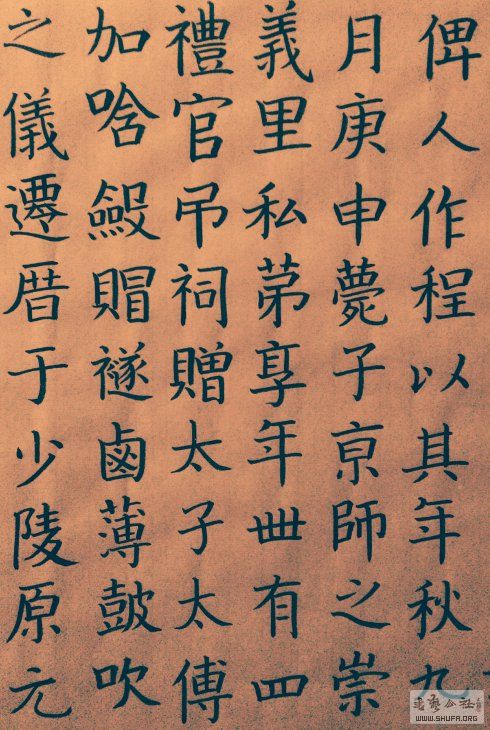 俾人作程以其年秋九
月庚申薨子亰師之崇
義里私苐享年丗有四
禮官吊祠贈太子太傅
加唅斂賵襚鹵薄鼓吹
之儀遷厝于少陵原元
書藝公社
WWW.SHUFA.ORG